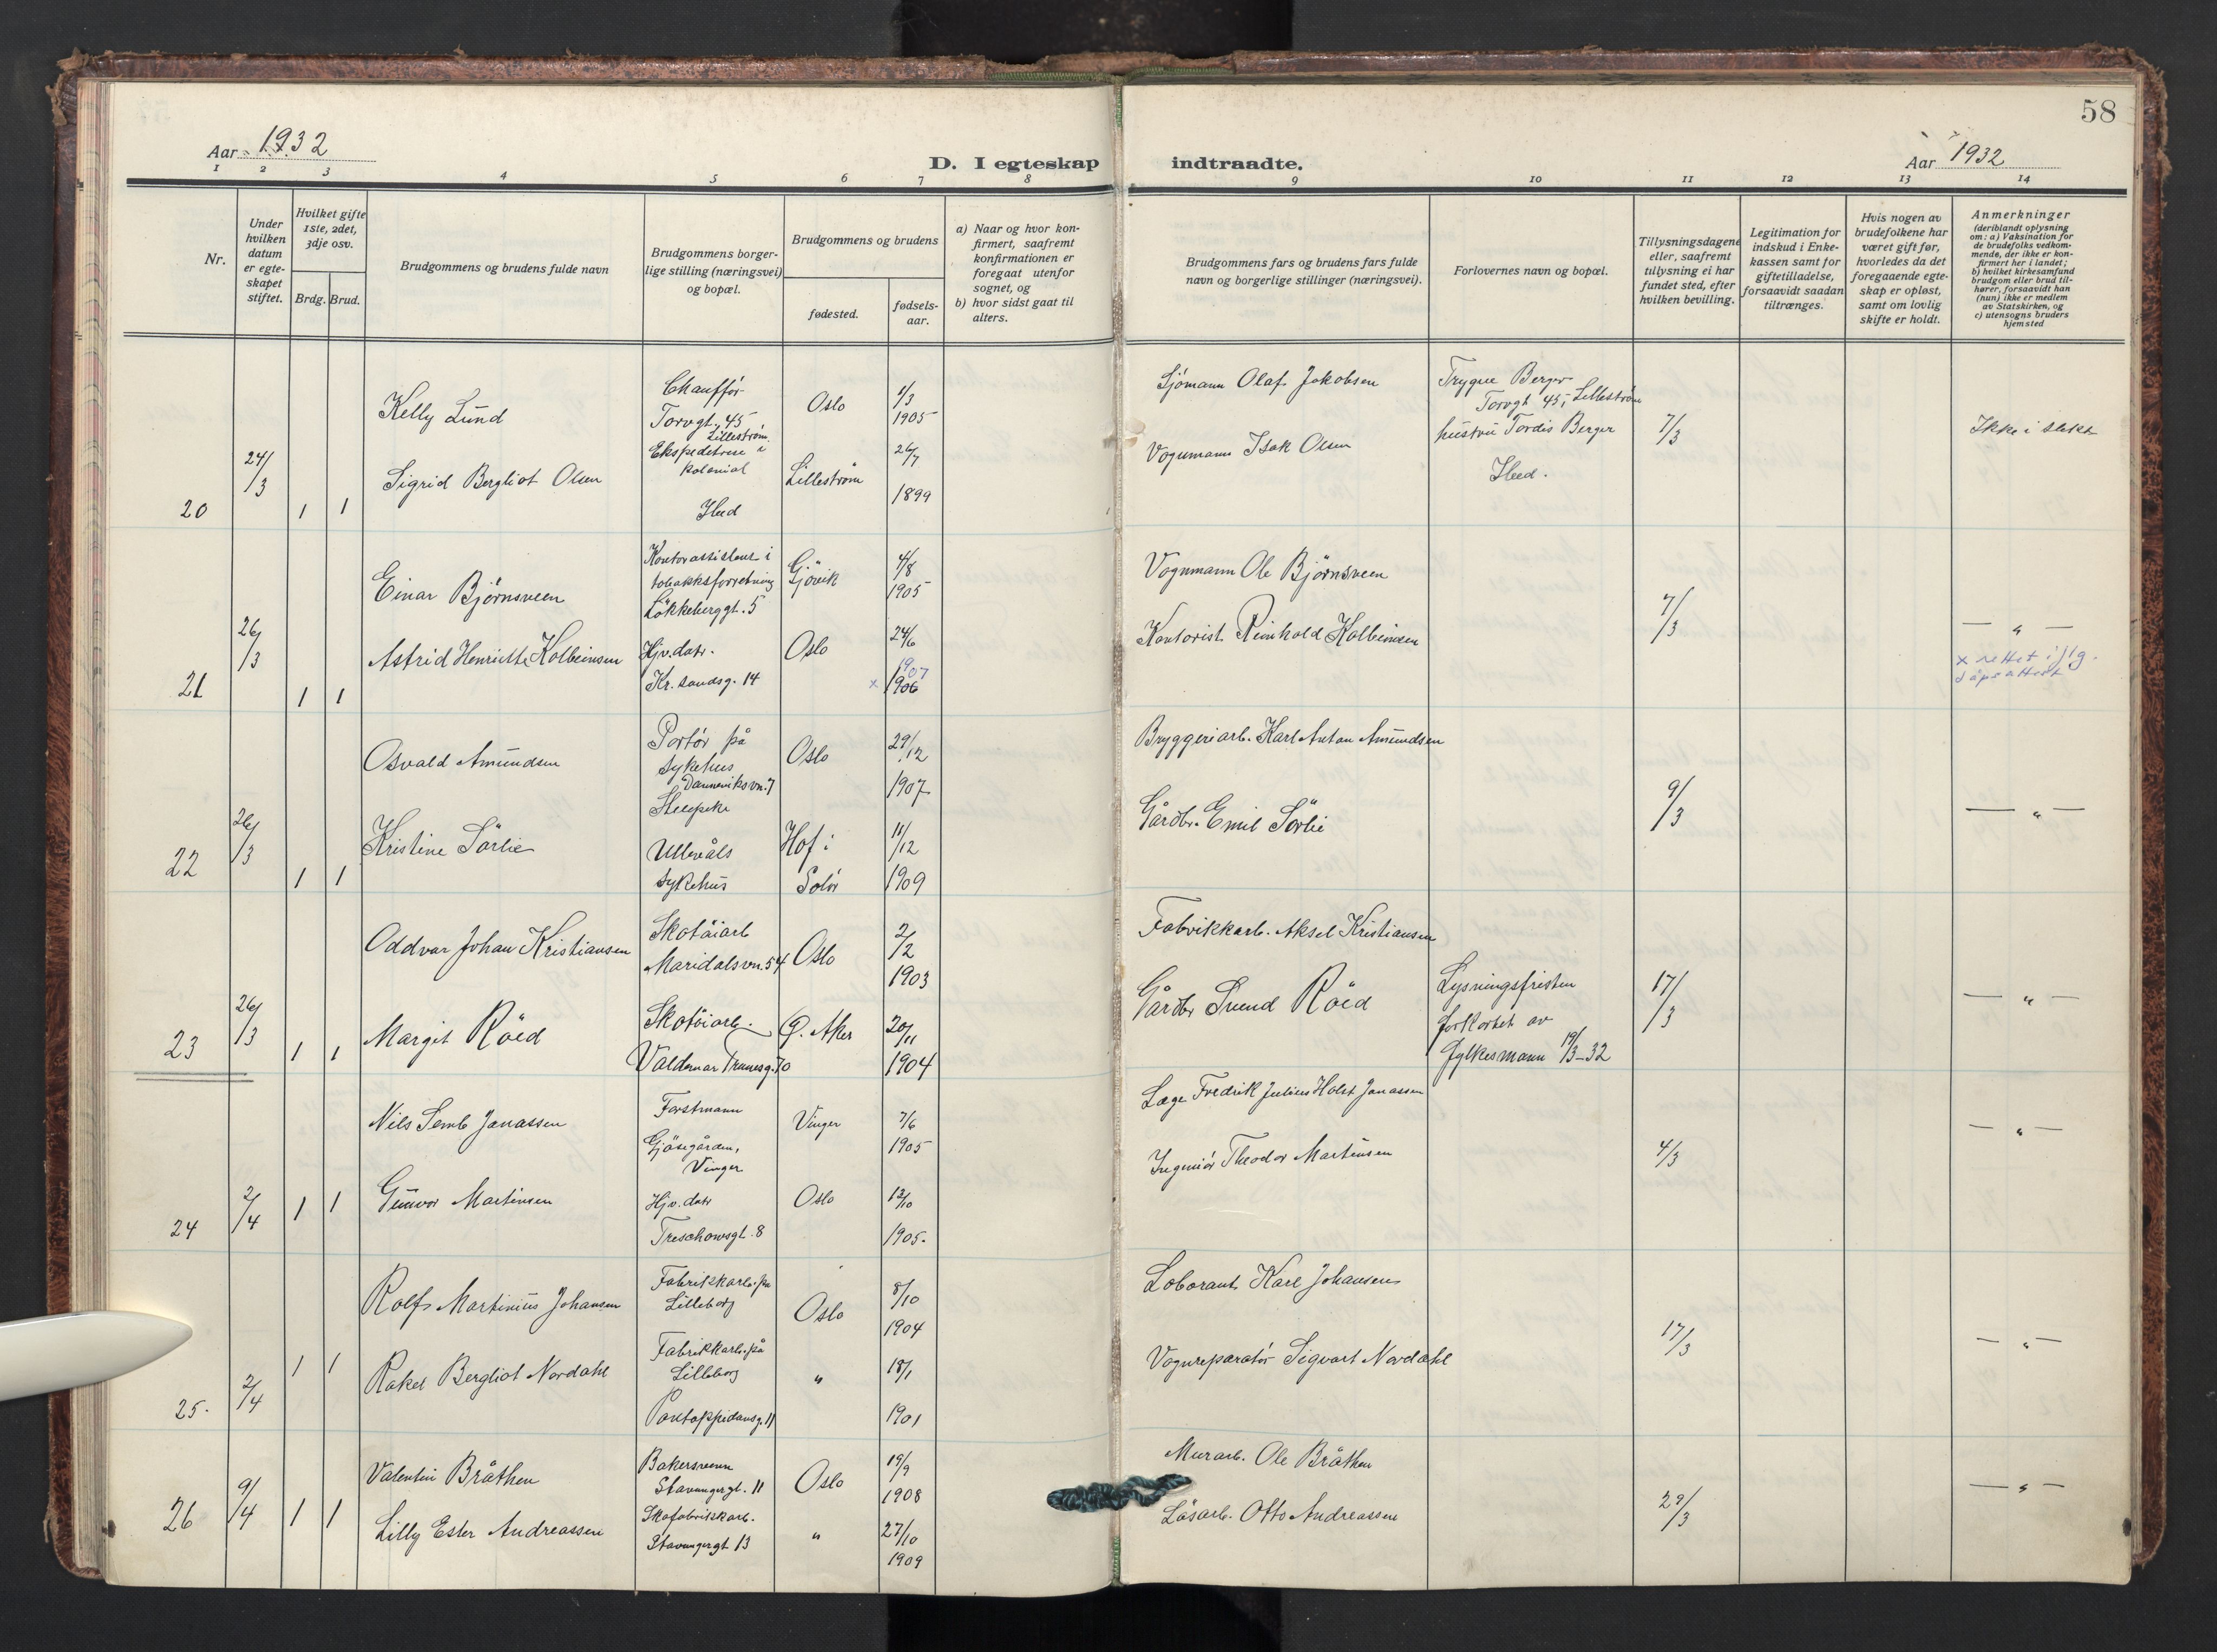 58
Aar 1932
D. I egteskap indtraadte.
Aar 1932
1 2 3 4 5 6 7 8 9 10 11 12 13 14
Nr.
Under hvilken datum er egteskapet stiftet.
Hvilket gifte 1ste, 2det, 3dje osv.
Brdg. Brud.
Brudgommens og brudens fulde navn
Brudgommens borgerlige stilling (næringsvei) og bopæl.
Brudgommens og brudens
fødested.
fødselsaar.
a) Naar og hvor konfirmert, saafremt konfirmationen er foregaat utenfor sognet, og
b) hvor sidst gaat til alters.
Brudgommens fars og brudens fars fulde navn og borgerlige stillinger (næringsvei).
Forlovernes navn og bopæl.
Tillysningsdagene eller, saafremt tillysning ei har fundet sted, efter hvilken bevilling.
Legitimation for indskud i Enkekassen samt for giftetilladelse, forsaavidt saadan tiltrænges.
Hvis nogen av brudefolkene har været gift før, hvorledes da det foregaaende egteskap er opløst, samt om lovlig skifte er holdt.
Anmerkninger (deriblandt oplysning om: a) Vaksination for de brudefolks vedkommende, der ikke er konfirmert her i landet; b) hvilket kirkesamfund brudgom eller brud tilhører, forsaavidt han (nun) ikke er medlem av Statskirken, og c) utensogns bruders hjemsted
20 24/3 1 1
Kelly Lund
Chauffór Torvgt. 45 Lillestrøm
Oslo
1/3 1905
Sjómann Olaf Jakobsen
Trygve Berger
Torvgt 45, Lillestrøm
hustru Tordis Berger
Ibid.
7/3
Ikke i slekt
Sigrid Bergliot Olsen
Ekspeditrise i kolonial
Ibid
Lillestrøm
26/7 1899
Vognmann Isak Olsen
21 26/3 1 1
Einar Bjørnsveen
Kontorassistent i tobakksforretning
Løkkeberggt. 5
Gjövik
4/8 1905
Vognmann Ole Bjørnsveen
7/3
— " —
Astrid Henriette Kolbeinsen
Hjv. datr.
Kr. sandsg. 14
Oslo
24/6
1907
x 1906
Kontorist Reinhold Kolbeinsen
x rettet iflg.
dåpsattest
22 26/3 1 1
Osvald Amundsen
Portór på sykehus
Danneviksvn. 7
Oslo
29/12 1907
Bryggeriarb. Karl Anton Amundsen
9/3
— " —
Kristine Sörlie
Ullevåls sykehus
Hof i Solör
11/12 1909
Gårdbr. Emil Sörlie
23 26/3 1 1
Oddvar Johan Kristiansen
Skotöiarb
Maridalsvn. 54
Oslo
2/2 1903
Fabrikkarb. Aksel Kristiansen
Lysningsfristen
forkortet av
fylkesmann 19/3-32
17/3
— " —
Margit Röed
Skotöiarb.
Valdemar Thranesg. 70
Ø. Aker
20/11 1904
Gårdbr Svend Röed
24 2/4 1 1
Nils Semb Janassen
Forstmann
Gjösegården,
Vinger
Vinger
7/6 1905
Læge Fredrik Julius Holst Janassen
4/3
— " —
Gunvor Martinsen
Hjv. datr
Treschowsgt. 8
Oslo
12/10 1905.
Ingeniör Theodor Martinsen
25. 2/4 1 1
Rolf Martinius Johansen
Fabrikkarb. på
Lilleborg
Oslo
8/10 1904
Loborant Karl Johansen
17/3
— " —
Rakel Bergliot Nordahl
Fabrikkarb. på
Lilleborg
Pontoppidansg. 11
"
18/1 1901
Vognreparatør Sigvart Nordahl
26 9/4 1 1
Valentin Bråthen
Bakersvenn
Stavangergt. 11
Oslo
19/9 1908
Murarb. Ole Bråthen
29/3
— " —
Lilly Ester Andreassen
Skofabrikkarb.
Stavangergt 13
"
27/10 1909
Lösarb. Otto Andreassen